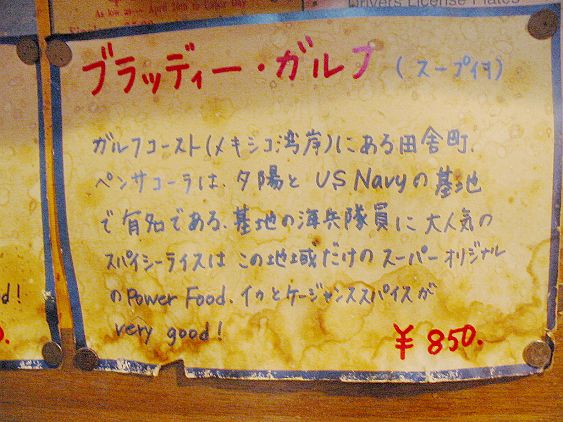 Drivers License Plates
ブラッディー・ガルフ (スープ付)
ガルフコースト(メキシコ湾岸)にある田舎町、
ペンサコーラは、夕陽と US Navyの基地
で有名である、基地の海兵隊員に大人気の
スパイシーライスは この地域だけの スーパーオリジナル
のPower Food. イカとケージャンススパイスが
very good!
¥850.
d!
0.